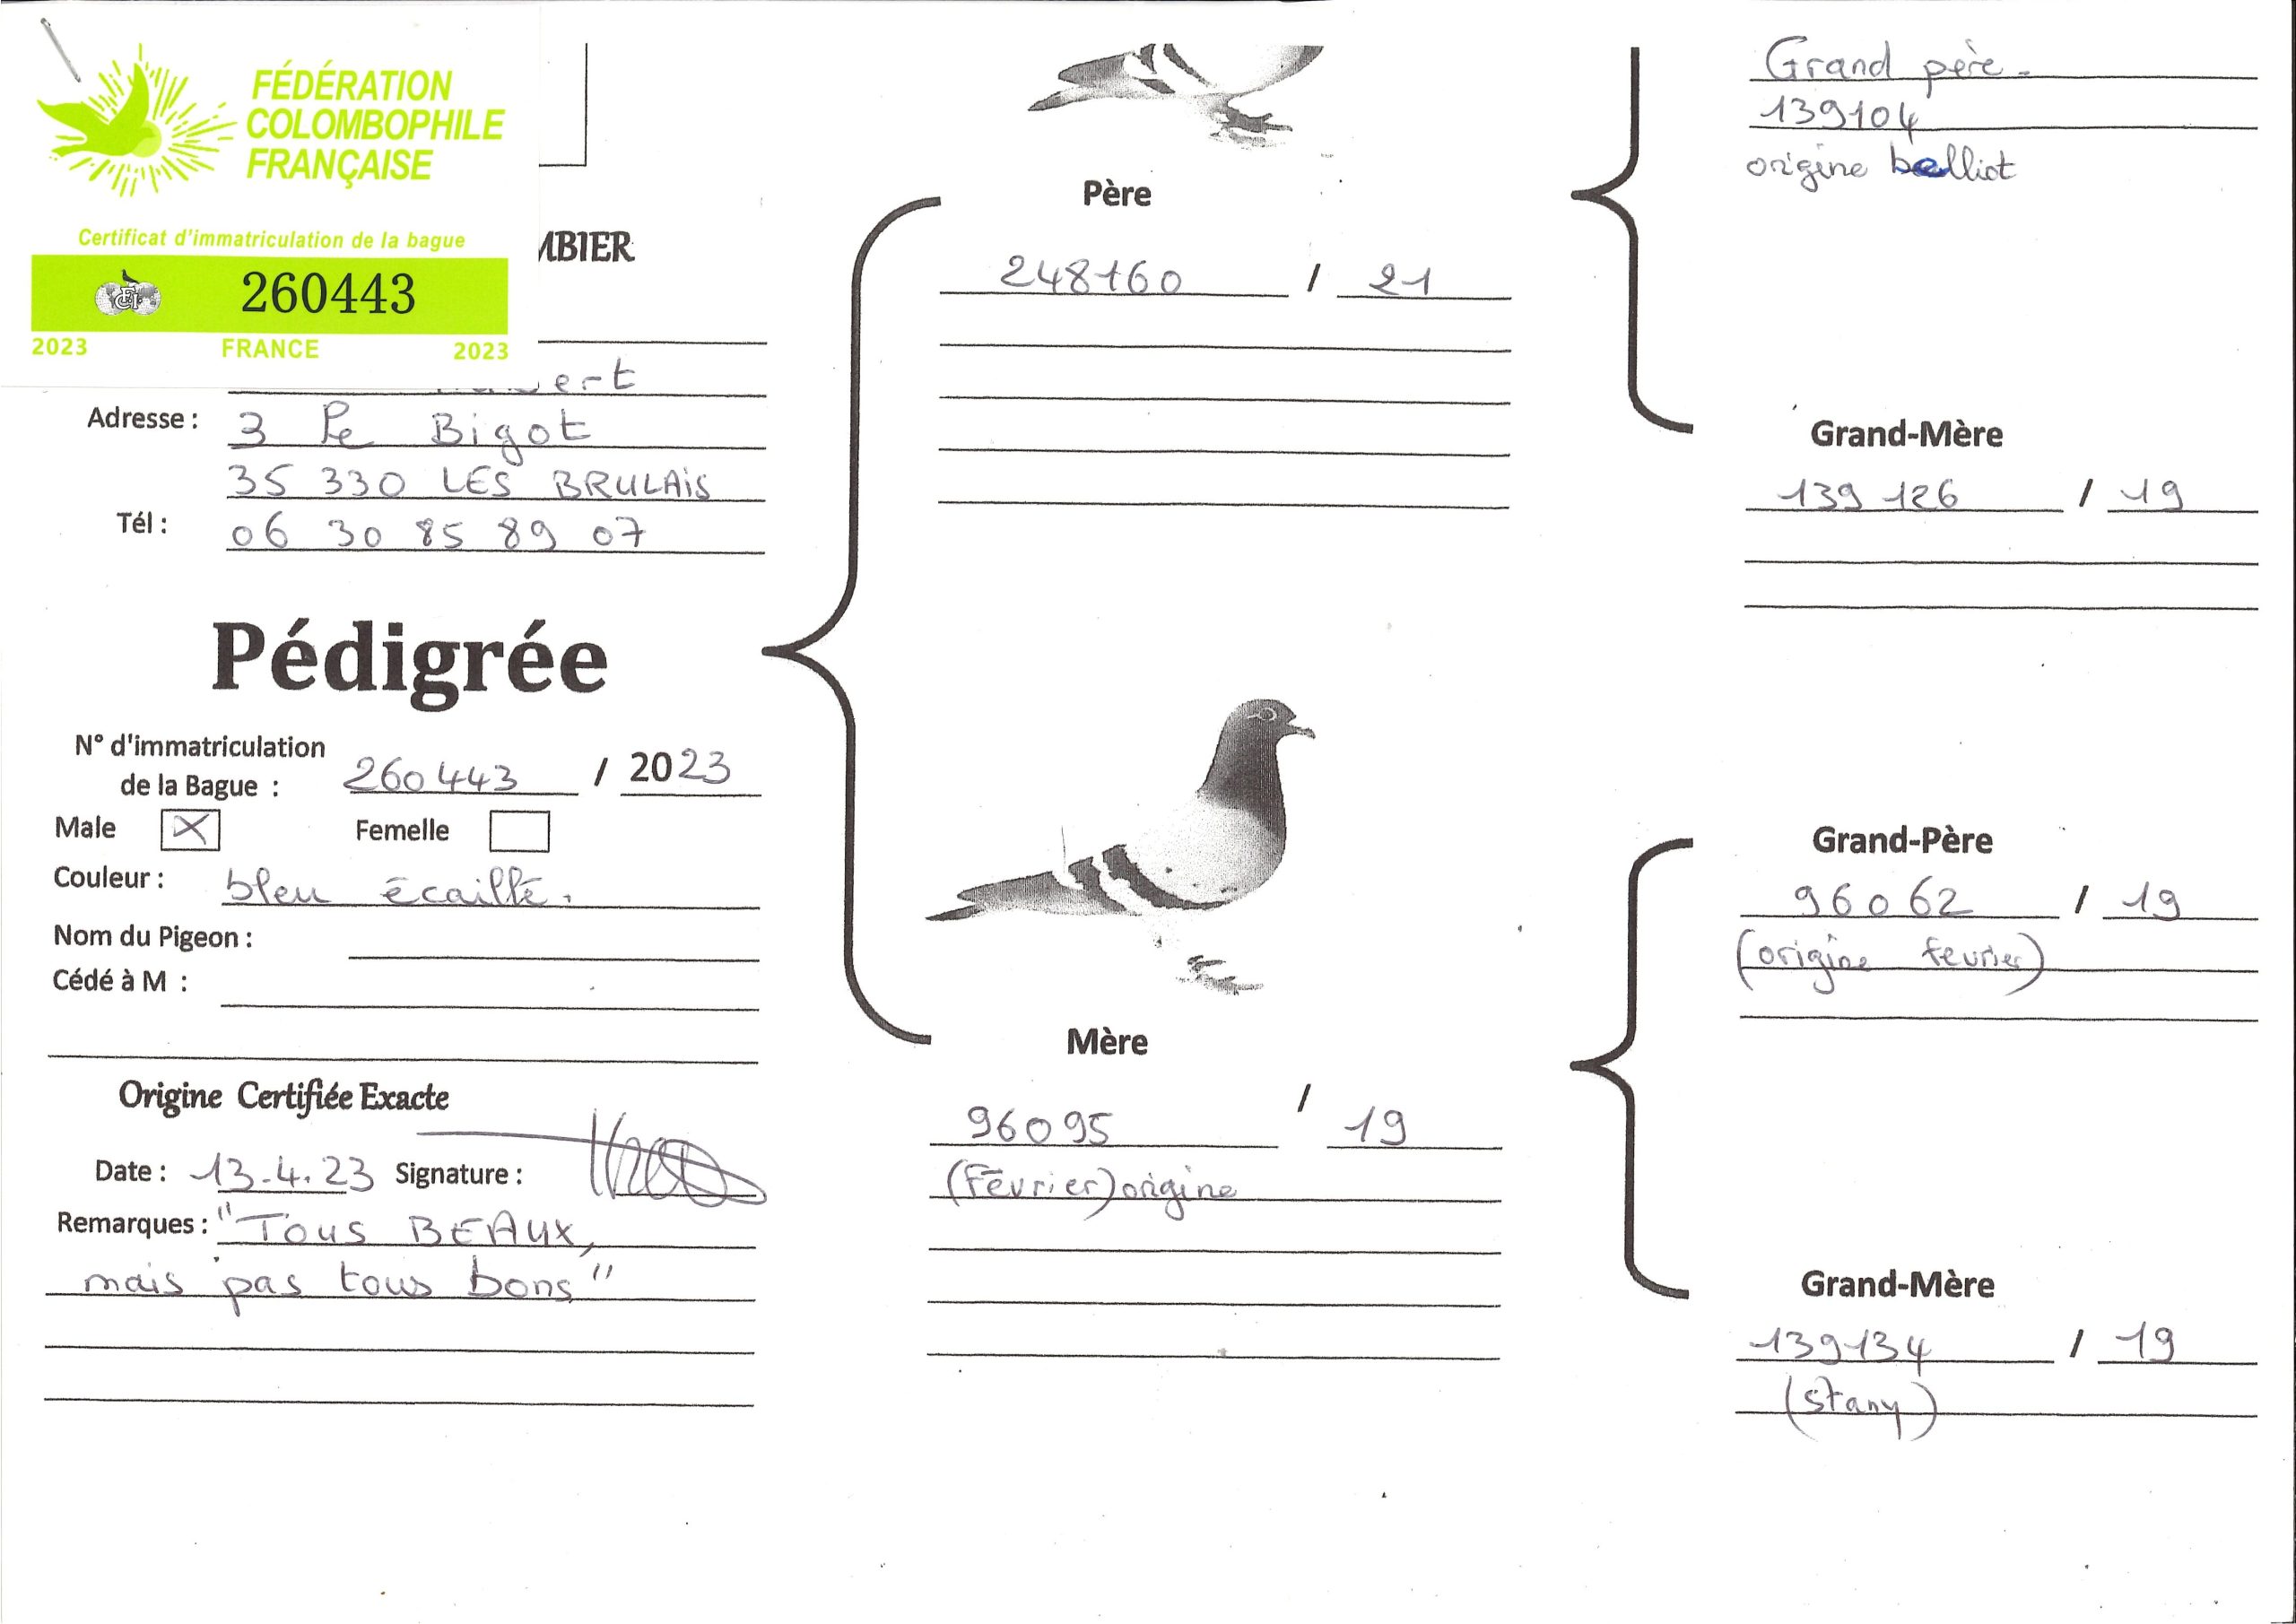 FÉDÉRATION
COLOMBOPHILE
FRANÇAISE
Certificat d'immatriculation de la bague
260443
2023 FRANCE 2023
MBIER
Adresse : 3 Le Bigot
35 330 LES BRULAiS
Tél : 06 30 85 89 07
Pédigrée
N° d'immatriculation
de la Bague : 260443 / 2023
Male X Femelle
Couleur : bleu écaillé.
Nom du Pigeon :
Cédé à M :
Origine Certifiée Exacte
Date : 13.4.23 Signature :
Remarques : "TOUS BEAUX,
mais pas tous bons"
Père
248160 / 21
Mère
96095 / 19
(Février) origine
Grand père.
139104
origine belliot
Grand-Mère
139 126 / 19
Grand-Père
96062 / 19
(origine fevrier)
Grand-Mère
139134 / 19
(stany)